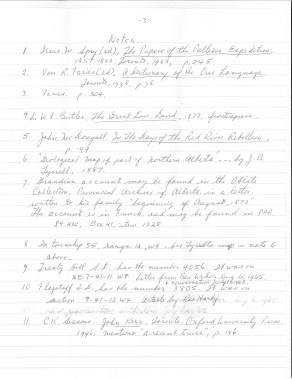 - 3 -
Notes.
1. Irene M. Spry (ed), The Papers of the Palliser Expedition,
1857-1860. Toronto, 1968, p. 245
2. Ven R. Faries (ed), A Dictionary of the Cree Language,
Toronto, 1938, p.
3. Faries. p. 304.
4. W. F. Butler. The Great Lone Land, 1872, frontispiece.
5. John McDougall, In the Days of the Red River Rebellion,
p. 149
6. "Geological Map of part of Northern Alberta" --- by J. B.
Tyrrell, 1887.
7. Grandin account may be found in the Oblate
Collection, Provincial Archives of Alberta, in a letter
written to his family "beginning of August, 1873"
The account is in French and may be found in PAA.
84.400, Box 41, item 1025.
8. In township 55, range 12, W4. See Tyrrell's map in note 6
above.
9. Treaty Hill S.D. has the number 4056. It was on
SE 7-41-11 W4. Letter from
10. Flagstaff S.D. has the number 3805. It was on
section 9-41-12 W4.
11. C.K. Sissons. John Kerr. Toronto: Oxford University Press,
1946. mentions "p. 146.